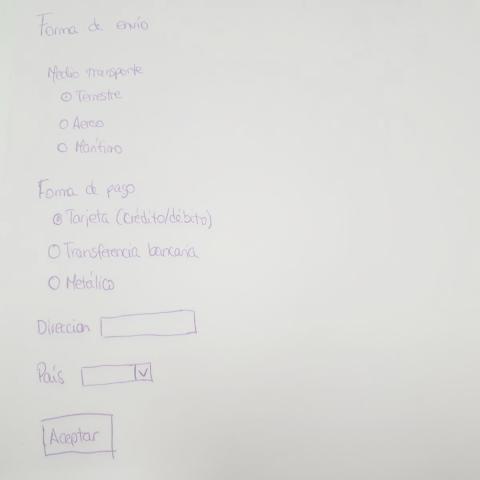 Forma de envío
Medio transporte
Terrestre
Aereo
Marítimo
Foma de pago
Tarjeta (crédito/débito)
Transferencia bancaria
Metálico
Direccion
País
Aceptar